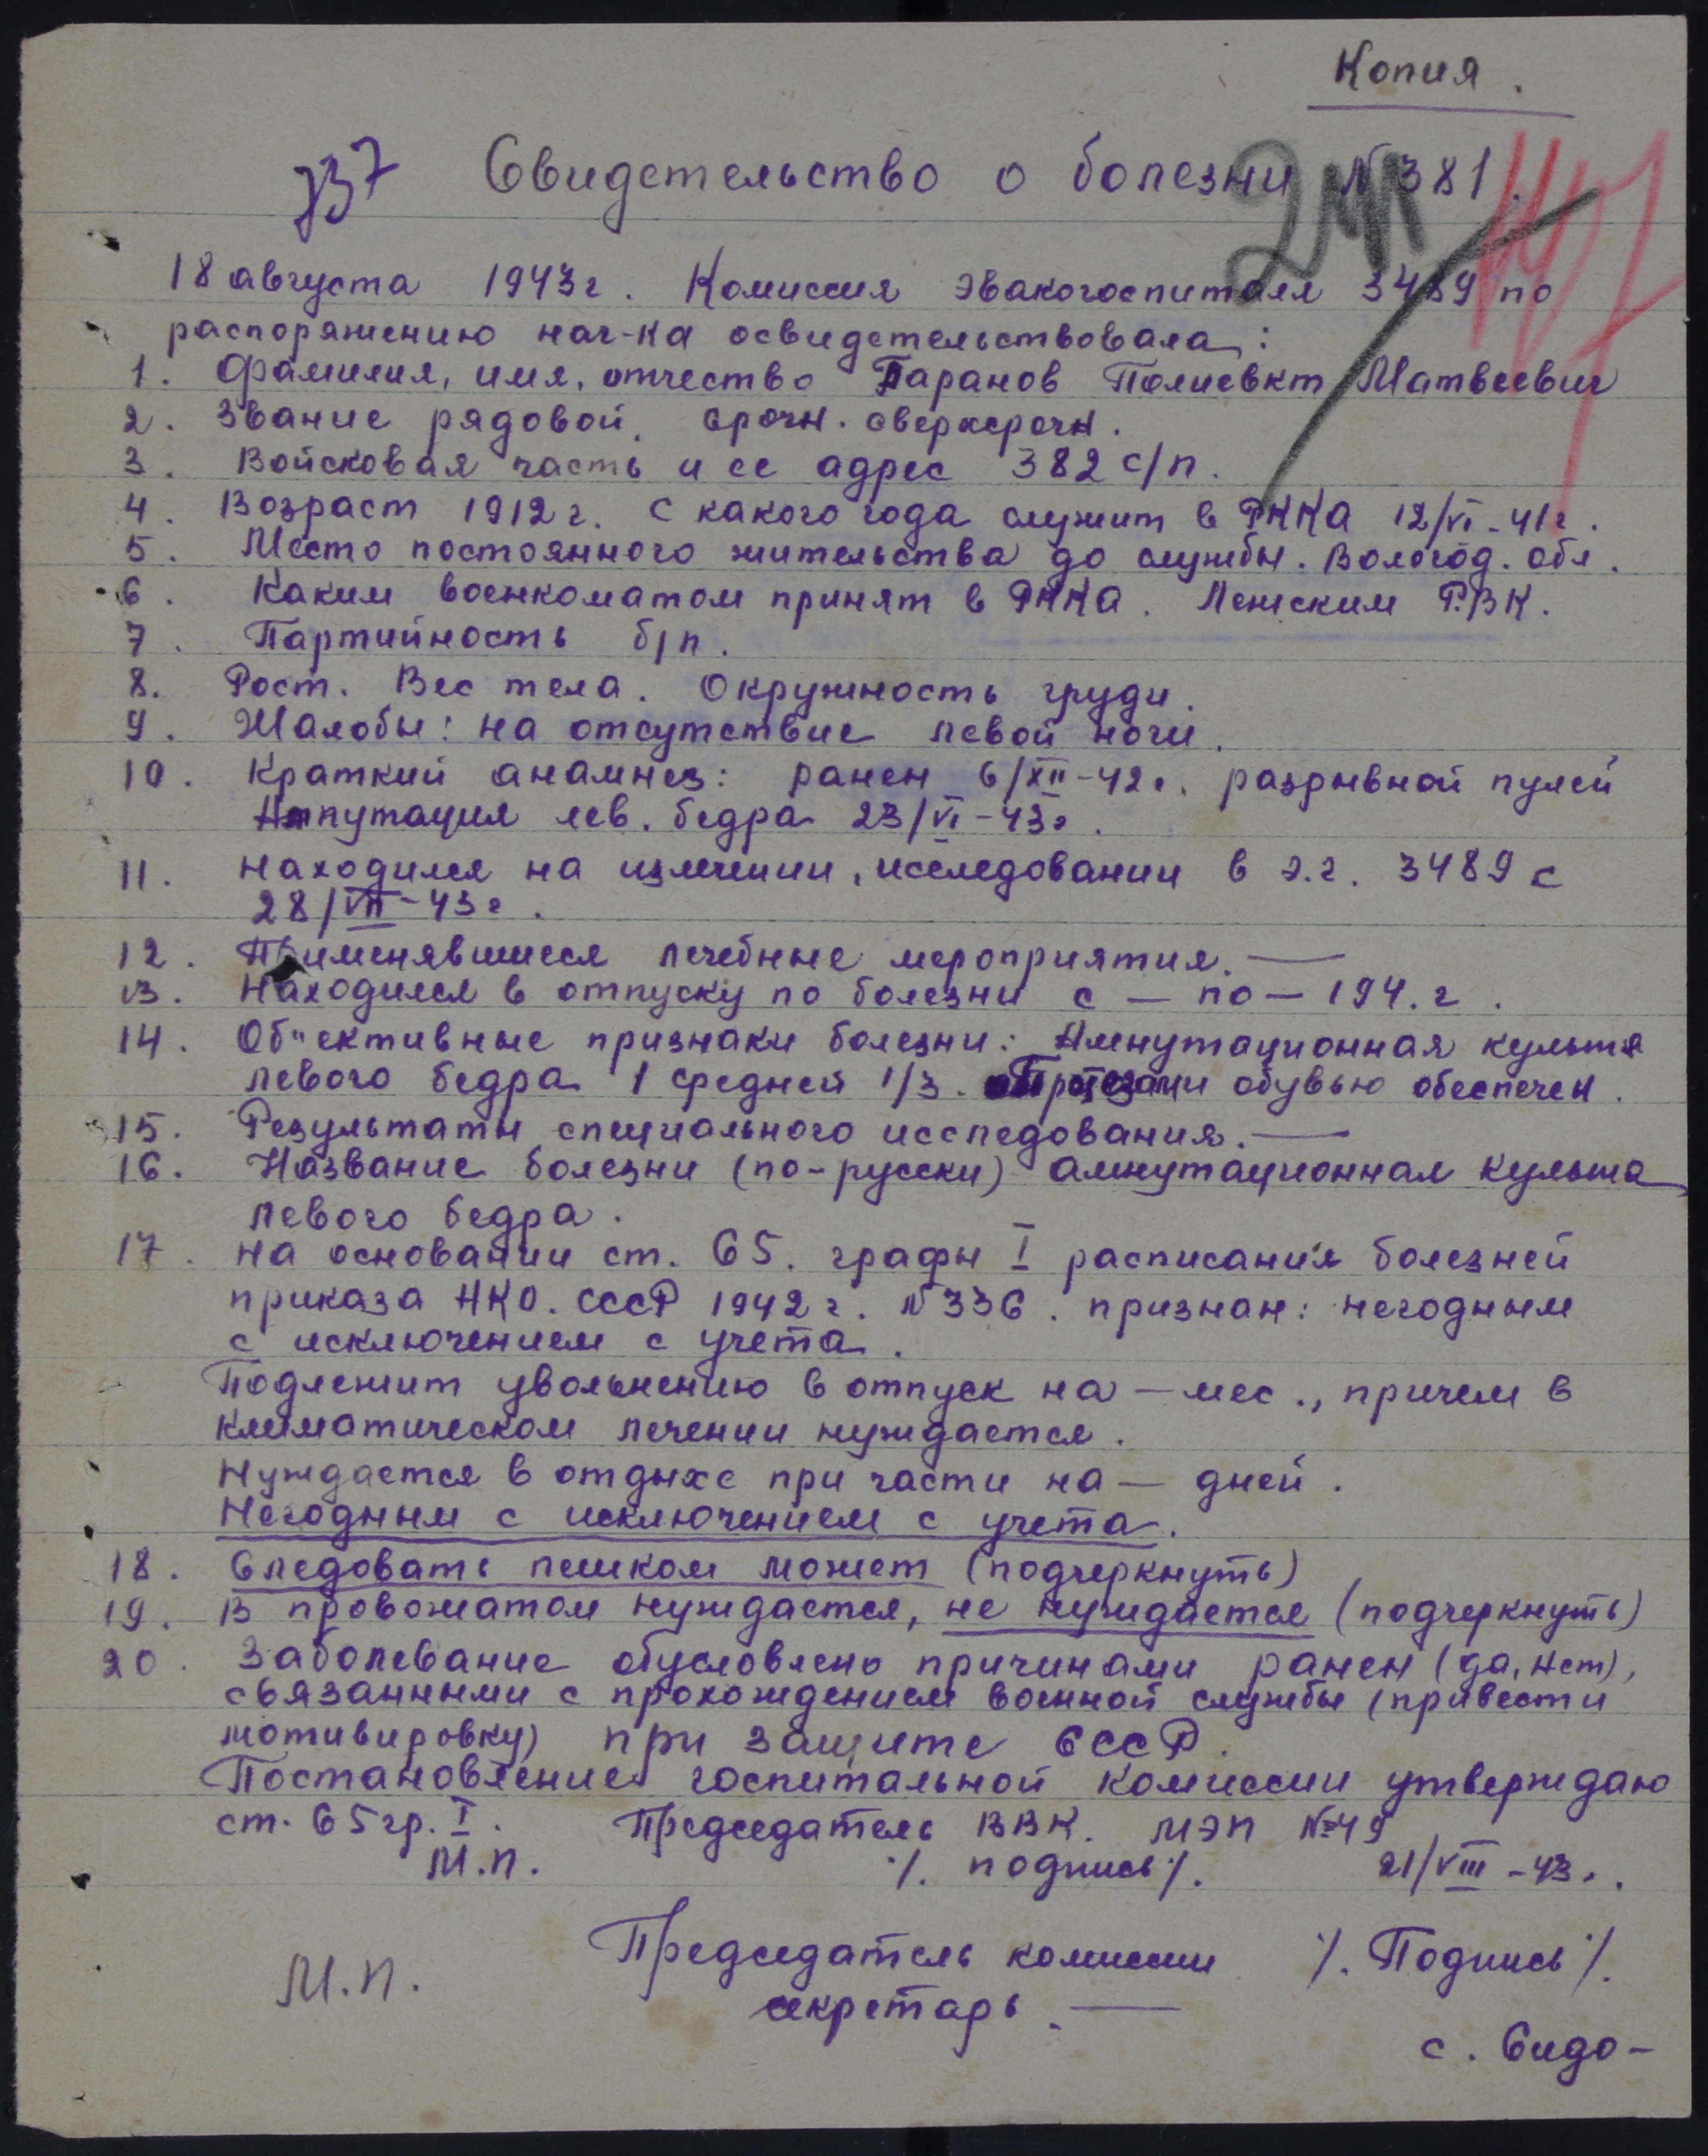 Копия.
737 Свидетельство о болезни № 381.
18 августа 1943г. Комиссия эвакогоспиталя 3489 по
распоряжению нач-ка освидетельствовала:
1. Фамилия, имя, отчество Таранов Полиевкт Матвеевич
2. Звание рядовой. срочн. сверхсрочн.
3. Войсковая часть и ее адрес 382 с/п.
4. Возраст 1912г. С какого года служит в РККА 12/VI-41г.
5. Место постоянного жительства до службы. Вологод. обл.
6. Каким военкоматом принят в РККА. Ленским Р.В.К.
7. Партийность б/п.
8. Рост. Вес тела. Окружность груди.
9. Жалобы: на отсутствие левой ноги.
10. Краткий анамнез: ранен 6/XII-42г. разрывной пулей
Ампутация лев. бедра 23/VI-43г.
11. Находился на излечении, исследовании в э.г. 3489 с
28/VII-43г.
12. Применявшиеся лечебные мероприятия. —
13. Находился в отпуску по болезни с — по — 194. г.
14. Об"ективные признаки болезни: Ампутационная культя
левого бедра 1 средней 1/3. Протезами обувью обеспечен.
15. Результаты специального исследования. —
16. Название болезни (по-русски) ампутационная культя
левого бедра.
17. На основании ст. 65. графы I расписания болезней
приказа НКО. СССР 1942г. № 336. признан: негодным
с исключением с учета.
Подлежит увольнению в отпуск на — мес., причем в
климатическом лечении нуждается.
Нуждается в отдыхе при части на — дней.
Негодным с исключением с учета.
18. Следовать пешком может (подчеркнуть)
19. В провожатом нуждается, не нуждается (подчеркнуть)
20. Заболевание обусловлено причинами ранен (да, нет),
связанными с прохождением военной службы (привести
мотивировку) при защите СССР.
Постановление госпитальной комиссии утверждаю
ст. 65 гр. I. Председатель ВВК. МЭП №49
М.П. /. подпись /. 21/VIII-43г.
Председатель комиссии /. Подпись /.
М.П.
секретарь. —
с. Сидо-